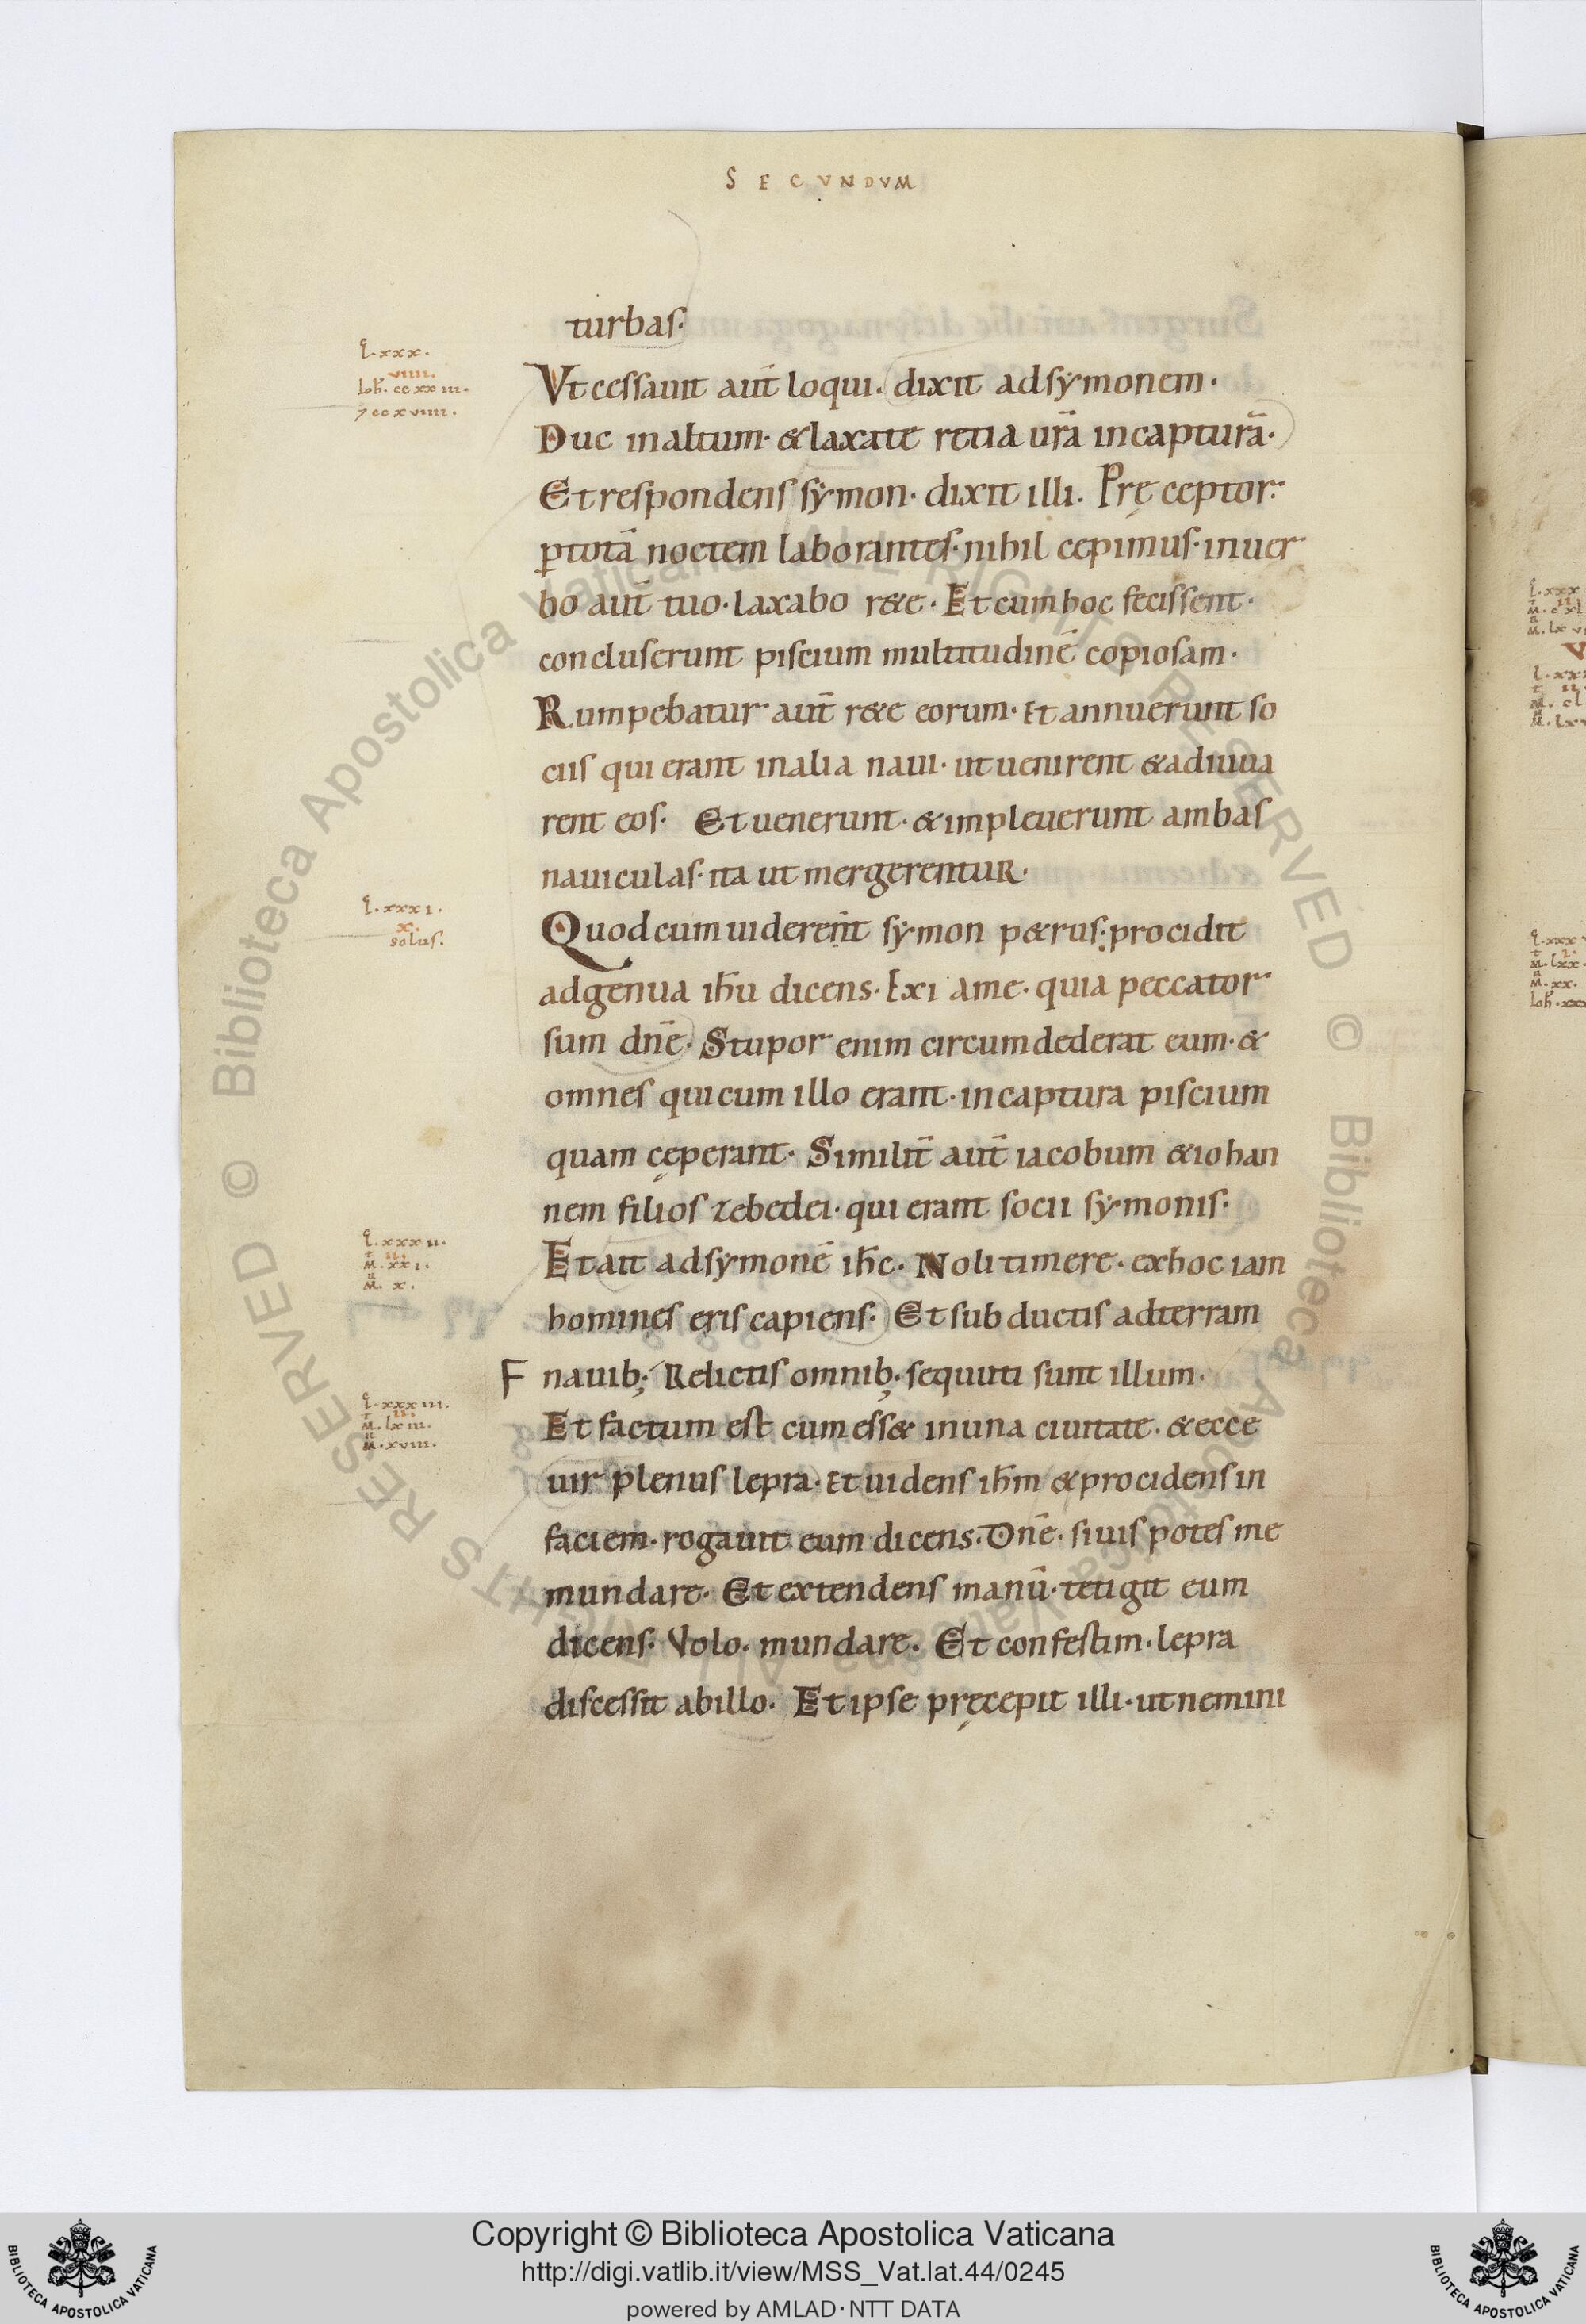 SECUNDUM
turbas.
L. xxx.
VIIII.
Ioh. ccxxiii.
7 ccxviiii.
Vt cessauit aut̄ loqui. dixit adsẏmonem.
Duc inaltum. &laxate retia ur̄a incapturā.
Et respondens sẏmon. dixit illi. Pręceptor.
ꝑtotā noctem laborantes. nihil cepimus. inuer
bo aut̄ tuo. laxabo r&e. Et cum hoc fecissent.
concluserunt piscium multitudinē copiosam.
Rumpebatur aut̄ r&e eorum. Et annuerunt so
ciis qui erant inalia naui. ut uenirent &adiuua
rent eos. Et uenerunt. &impleuerunt ambas
nauiculas. ita ut mergerentuR.
L. xxxi.
x.
solus.
Quod cum uiderent̄ sẏmon p&rus. procidit
adgenua ih̄u dicens. Exi ame. quia peccator
sum dn̄e. Stupor enim circumdederat eum. &
omnes quicum illo erant. incaptura piscium
quam cęperant. Similit̄ aut̄ iacobum &iohan
nem filios zebedei. qui erant socii sẏmonis.
L. xxxii.
II.
M. xxi.
M. x.
Et ait adsẏmonē ih̄c. Noli timere. exhoc iam
homines eris capiens. Et subductis adterram
F nauib; Relictis omnib; sequuti sunt illum.
L. xxxiii.
II.
M. lxiii.
M. xviii.
Et factum est cum ess& inuna ciuitate. &ecce
uir plenus lepra. Et uidens ih̄m &procidens in
faciem. rogauit eum dicens. Dn̄e. siuis potes me
mundare. Et extendens manū. tetigit eum
dicens. Volo. mundare. Et confestim. lepra
discessit abillo. Et ipse pręcepit illi. ut nemini
Copyright © Biblioteca Apostolica Vaticana
http://digi.vatlib.it/view/MSS_Vat.lat.44/0245
powered by AMLAD · NTT DATA
BIBLIOTECA APOSTOLICA VATICANA
BIBLIOTECA APOSTOLICA VATICANA